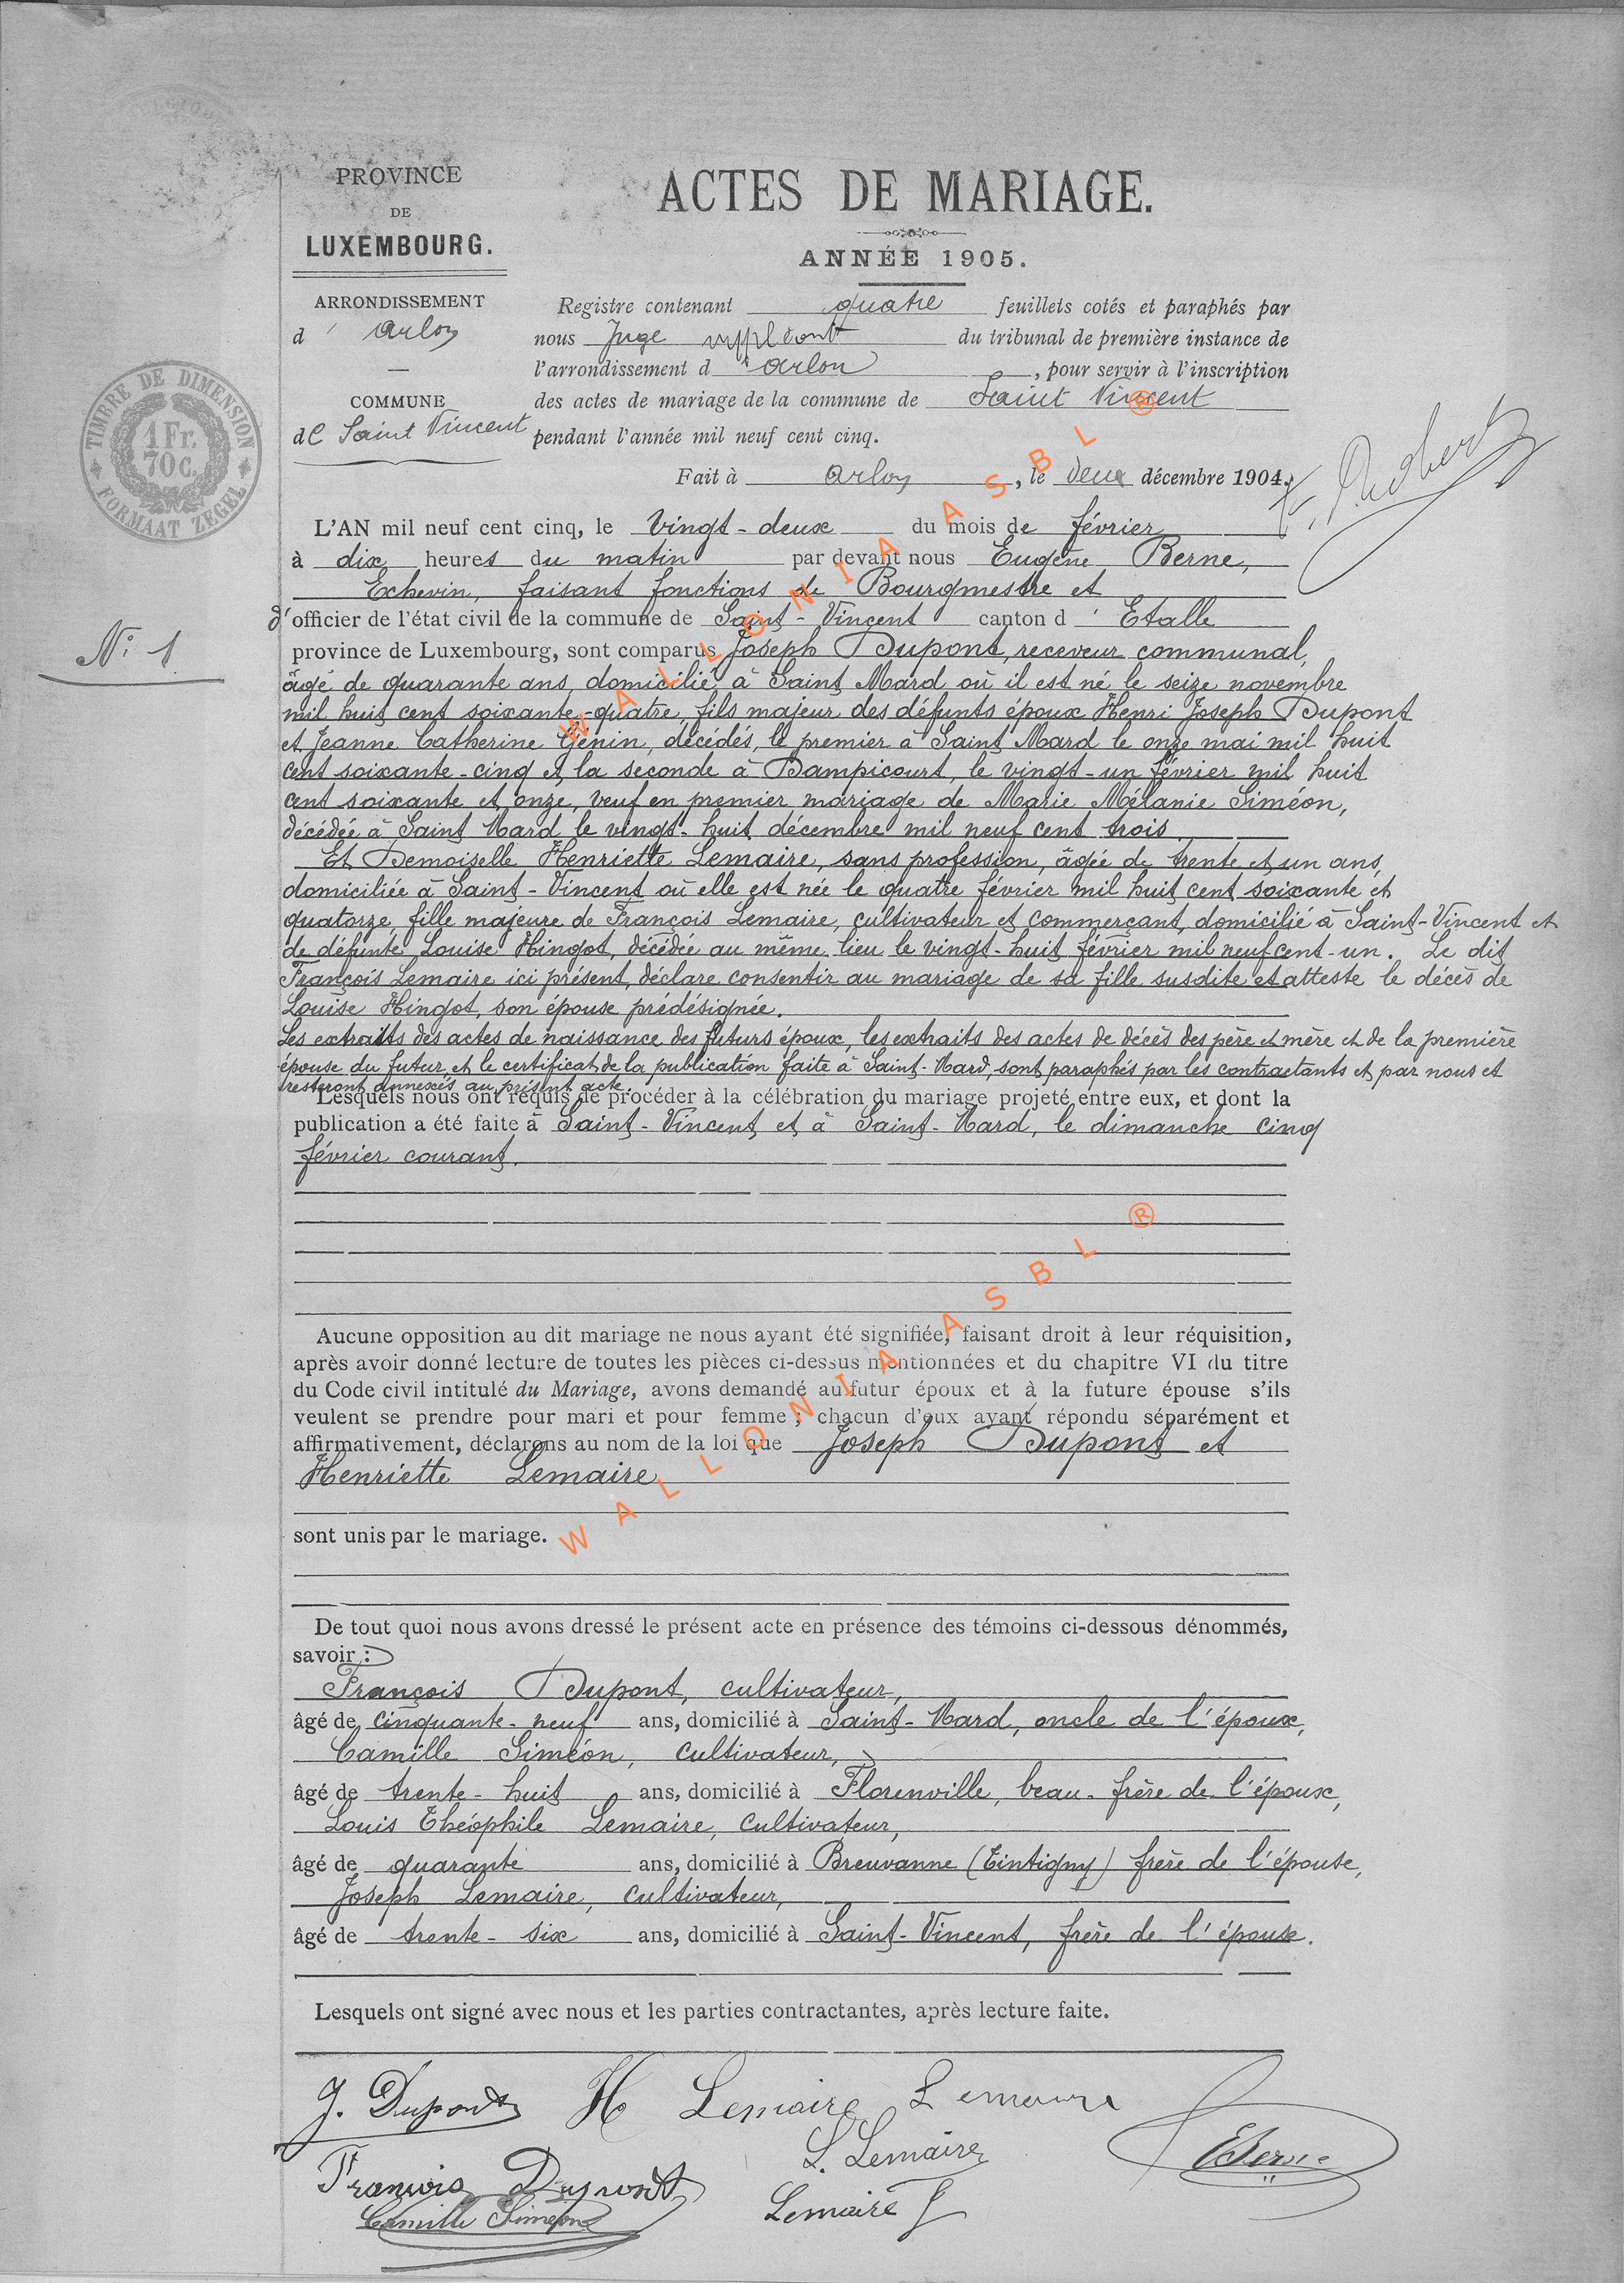 PROVINCE
DE
LUXEMBOURG.
ARRONDISSEMENT
d' Arlon
COMMUNE
de Saint Vincent
TIMBRE DE DIMENSION
1 Fr.
70 C.
FORMAAT ZEGEL
ACTES DE MARIAGE.
ANNÉE 1905.
Registre contenant quatre feuillets cotés et paraphés par
nous Juge suppléant du tribunal de première instance de
l'arrondissement d'Arlon, pour servir à l'inscription
des actes de mariage de la commune de Saint Vincent
pendant l'année mil neuf cent cinq.
Fait à Arlon, le deux décembre 1904.
N° 1
L'AN mil neuf cent cinq, le vingt-deux du mois de février
à dix heures du matin par devant nous Eugène Berne,
Echevin, faisant fonctions de Bourgmestre et
d'officier de l'état civil de la commune de Saint-Vincent canton d'Etalle
province de Luxembourg, sont comparus Joseph Dupont, receveur communal,
âgé de quarante ans, domicilié à Saint Mard où il est né le seize novembre
mil huit cent soixante-quatre, fils majeur des défunts époux Henri Joseph Dupont
et Jeanne Catherine Génin, décédés, le premier à Saint Mard le onze mai mil huit
cent soixante-cinq et la seconde à Dampicourt, le vingt-un février mil huit
cent soixante et onze, veuf en premier mariage de Marie Mélanie Siméon,
décédée à Saint Mard le vingt-huit décembre mil neuf cent trois.
Et Demoiselle Henriette Lemaire, sans profession, âgée de trente et un ans,
domiciliée à Saint-Vincent où elle est née le quatre février mil huit cent soixante et
quatorze, fille majeure de François Lemaire, cultivateur et commerçant, domicilié à Saint-Vincent et
de défunte Louise Hingot, décédée au même lieu le vingt-huit février mil neuf cent-un. Le dit
François Lemaire ici présent, déclare consentir au mariage de sa fille susdite et atteste le décès de
Louise Hingot, son épouse prédésignée.
Les extraits des actes de naissance des futurs époux, les extraits des actes de décès des père et mère et de la première
épouse du futur, et le certificat de la publication faite à Saint-Mard, sont paraphés par les contractants et par nous et
resteront annexés au présent acte.
Lesquels nous ont requis de procéder à la célébration du mariage projeté entre eux, et dont la
publication a été faite à Saint-Vincent et à Saint-Mard, le dimanche cinq
février courant.
Aucune opposition au dit mariage ne nous ayant été signifiée, faisant droit à leur réquisition,
après avoir donné lecture de toutes les pièces ci-dessus mentionnées et du chapitre VI du titre
du Code civil intitulé du Mariage, avons demandé au futur époux et à la future épouse s'ils
veulent se prendre pour mari et pour femme ; chacun d'eux ayant répondu séparément et
affirmativement, déclarons au nom de la loi que Joseph Dupont et
Henriette Lemaire
sont unis par le mariage.
De tout quoi nous avons dressé le présent acte en présence des témoins ci-dessous dénommés,
savoir :
François Dupont, cultivateur,
âgé de cinquante-neuf ans, domicilié à Saint-Mard, oncle de l'époux,
Camille Siméon, cultivateur,
âgé de trente-huit ans, domicilié à Florenville, beau-frère de l'époux,
Louis Théophile Lemaire, cultivateur,
âgé de quarante ans, domicilié à Breuvanne (Tintigny) frère de l'épouse,
Joseph Lemaire, cultivateur,
âgé de trente-six ans, domicilié à Saint-Vincent, frère de l'épouse.
Lesquels ont signé avec nous et les parties contractantes, après lecture faite.
J. Dupont H Lemaire Lemaire
L. Lemaire EBerne
François Dupont
Camille Siméon Lemaire J
WALLONIA ASBL ®
WALLONIA ASBL ®